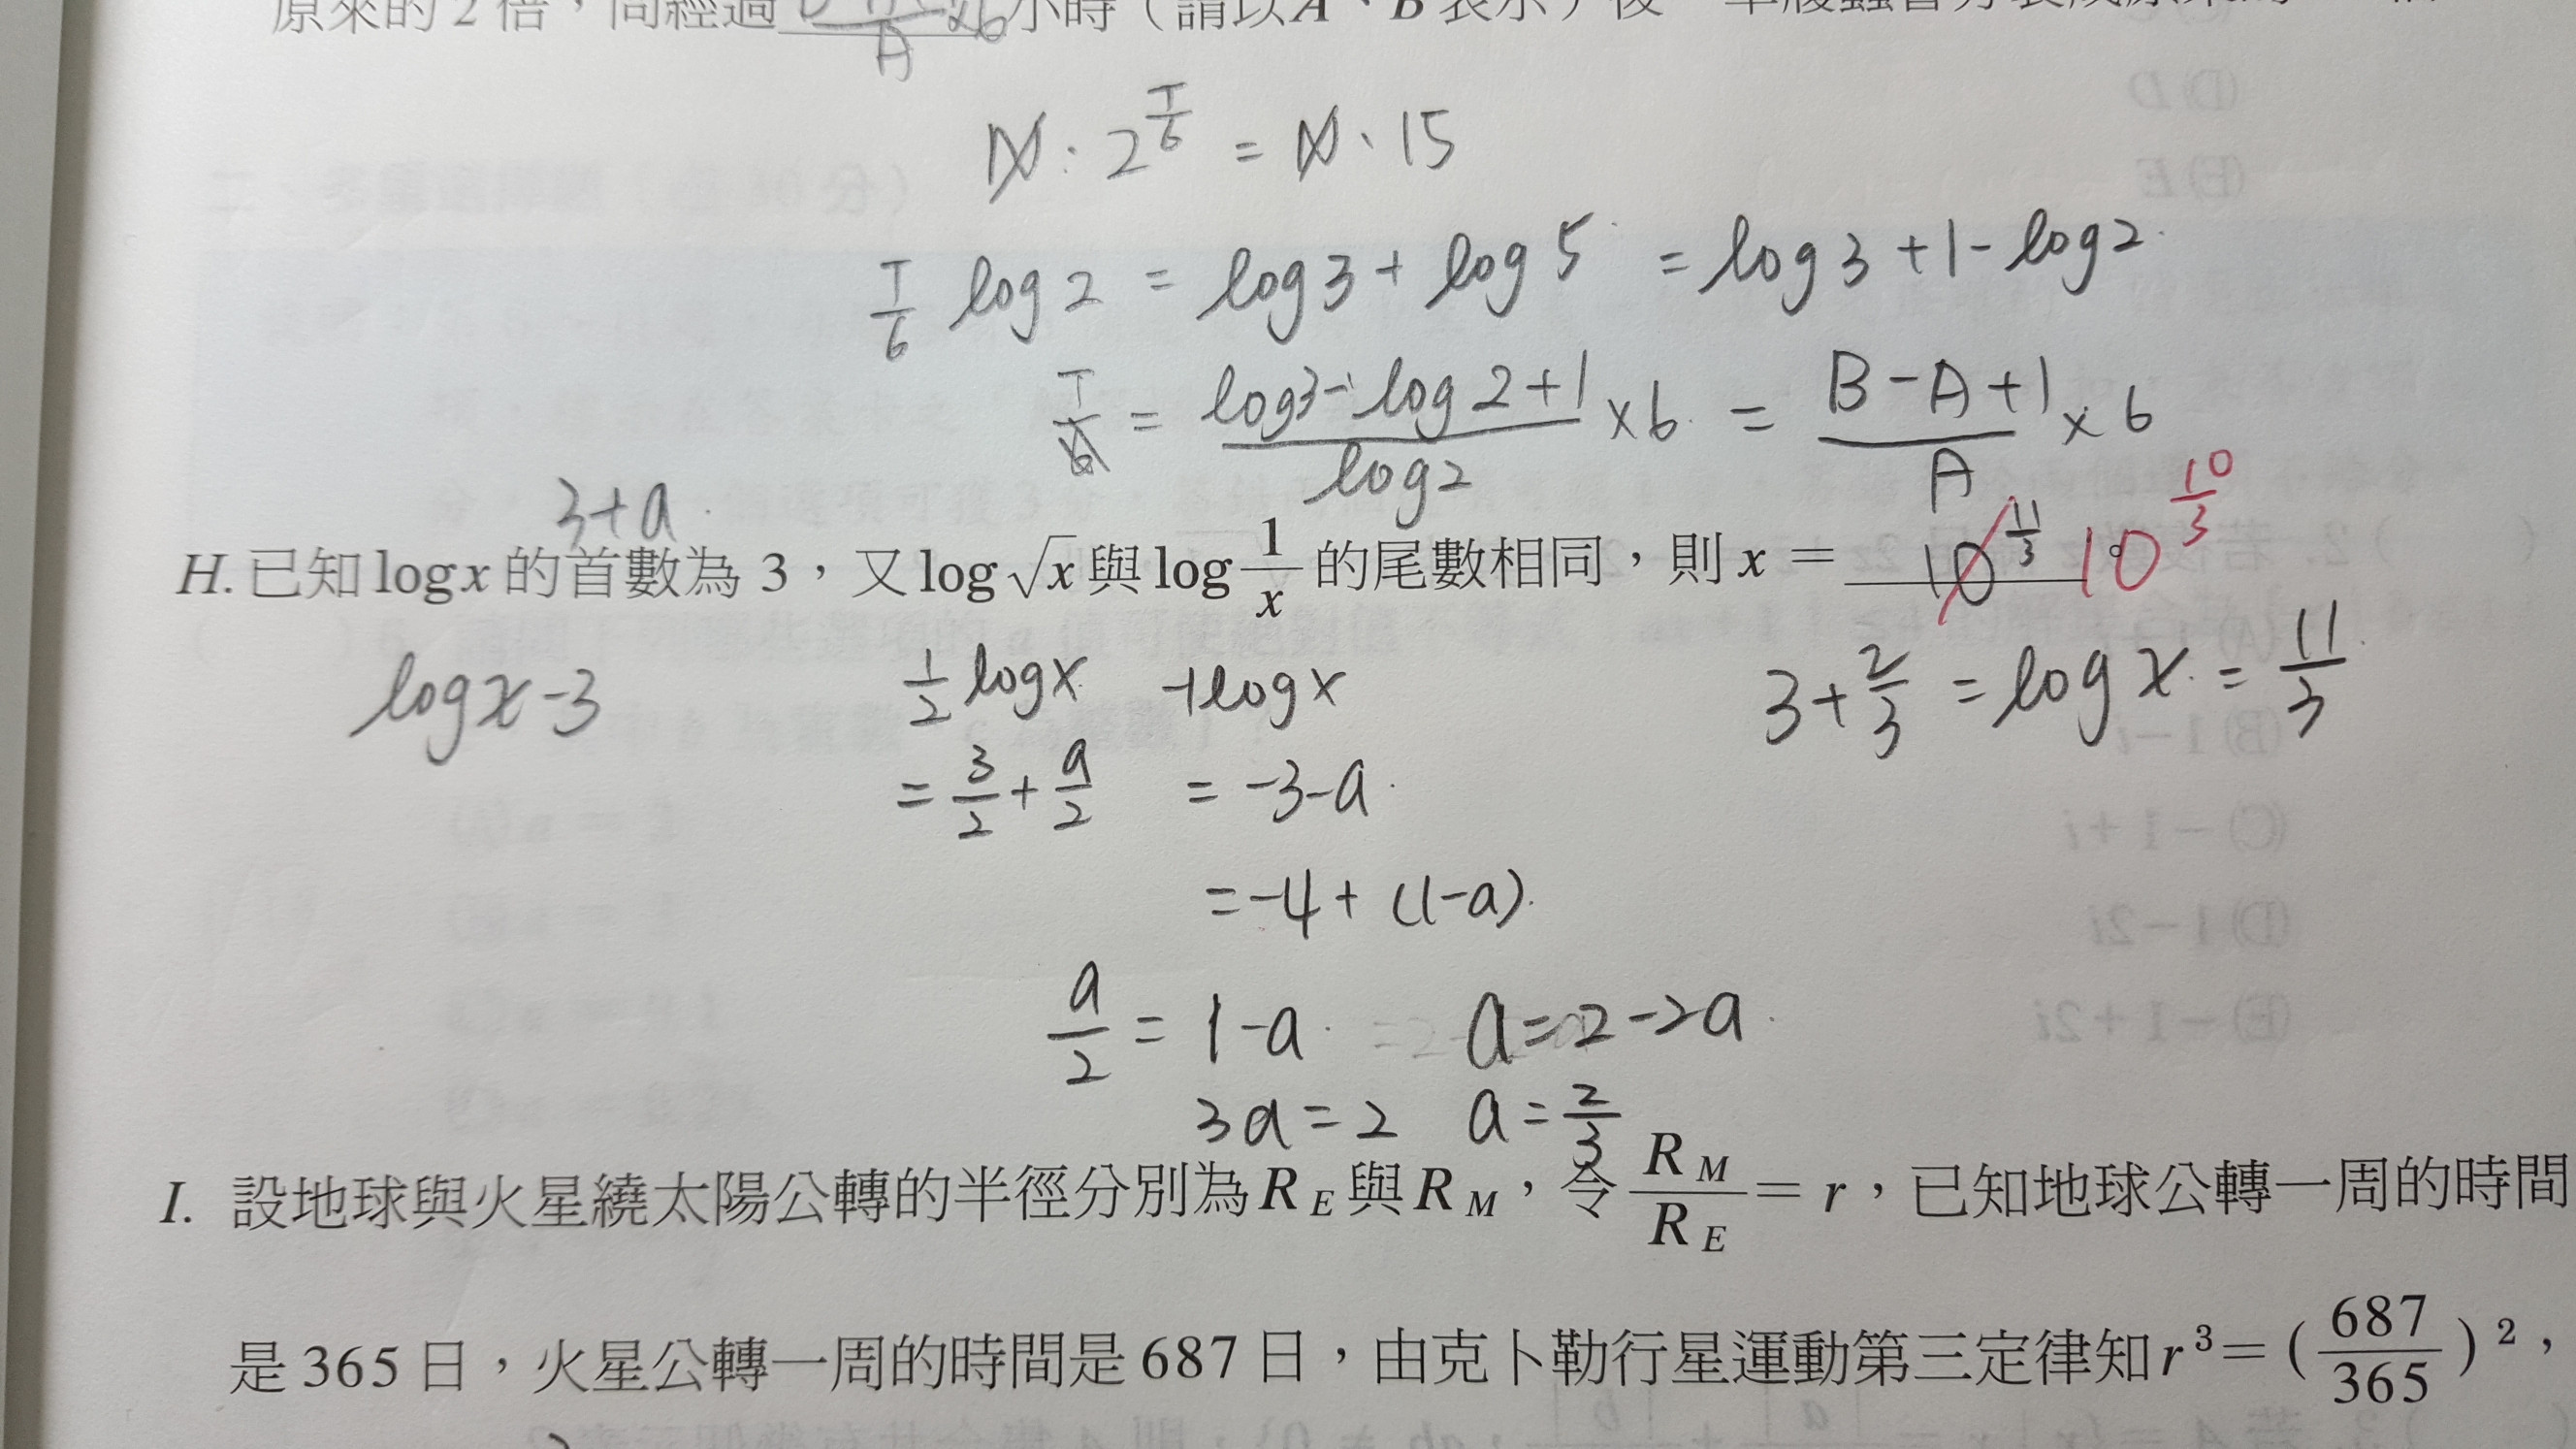 原來的 2 倍，問經過 小時（請以 A、B 表示）後
A
N · 2^(T/6) = N · 15
T/6 log 2 = log 3 + log 5 = log 3 + 1 - log 2
T/6 = (log3 - log 2 + 1)/log 2 × 6 = (B - A + 1)/A × 6
3+a
H. 已知 log x 的首數為 3，又 log √x 與 log 1/x 的尾數相同，則 x = 10^(11/3) 10^(10/3) 。
log x - 3
1/2 log x -1 log x
3 + 2/3 = log x = 11/3
= 3/2 + a/2 = -3-a
= -4 + (1-a)
a/2 = 1-a a = 2-2a
3a = 2 a = 2/3
I. 設地球與火星繞太陽公轉的半徑分別為 R_E 與 R_M，令 R_M/R_E = r，已知地球公轉一周的時間
是 365 日，火星公轉一周的時間是 687 日，由克卜勒行星運動第三定律知 r³ = (687/365)²，